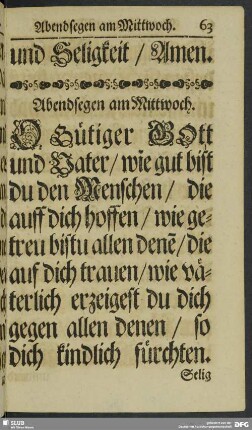 Abendsegen am Mittwoch. 63
und Seligkeit / Amen.
Abendsegen am Mittwoch.
O Gütiger GOtt
und Vater / wie gut bist
du den Menschen / die
auff dich hoffen / wie ge-
treu bistu allen denē / die
auf dich trauen / wie vä-
terlich erzeigest du dich
gegen allen denen / so
dich kindlich fürchten.
Selig
SLUB
DFG